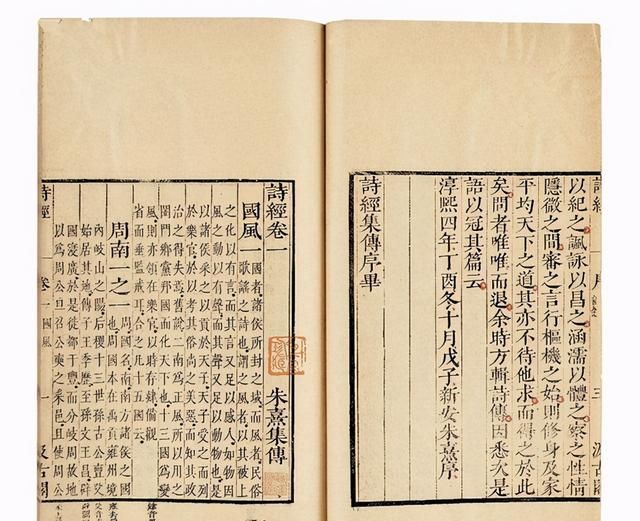 三
以紀之諷詠以昌之涵濡以體之察之性情
隱微之間審之言行樞機之始則修身及家
平均天下之道其亦不待他求而得之於此
矣問者唯唯而退余時方輯詩傳因悉次是
語以冠其篇云
淳熙四年丁酉冬十月戊子新安朱熹序
詩經集傳序畢
詩經卷一 朱熹集傳
國風一 國者諸侯所封之域而風者民俗
歌謠之詩也謂之風者以其被上
之化以有言而其言又足以感人如物因
風之動以有聲而其聲又足以動物也是
以諸侯采之以貢於天子天子受之而列
於樂官於以考其俗尚之美惡而知其政
治之得失焉舊說二南為正風所以用之
閨門鄉黨邦國而化天下也十三國為變
風則亦領在樂官以時存肄備觀
省而垂監戒耳合之凡十五國云
周南一之一 周國名南南方諸侯之國
也周國本在禹貢雍州境
內岐山之陽后稷十三世孫古公亶父
始居其地傳子王季歷至孫文王昌辟
國寖廣於是徙都于豐而分岐周故地
以為周公旦召公奭之采邑且使周公
詩經 卷一 國風 一 汲古閣